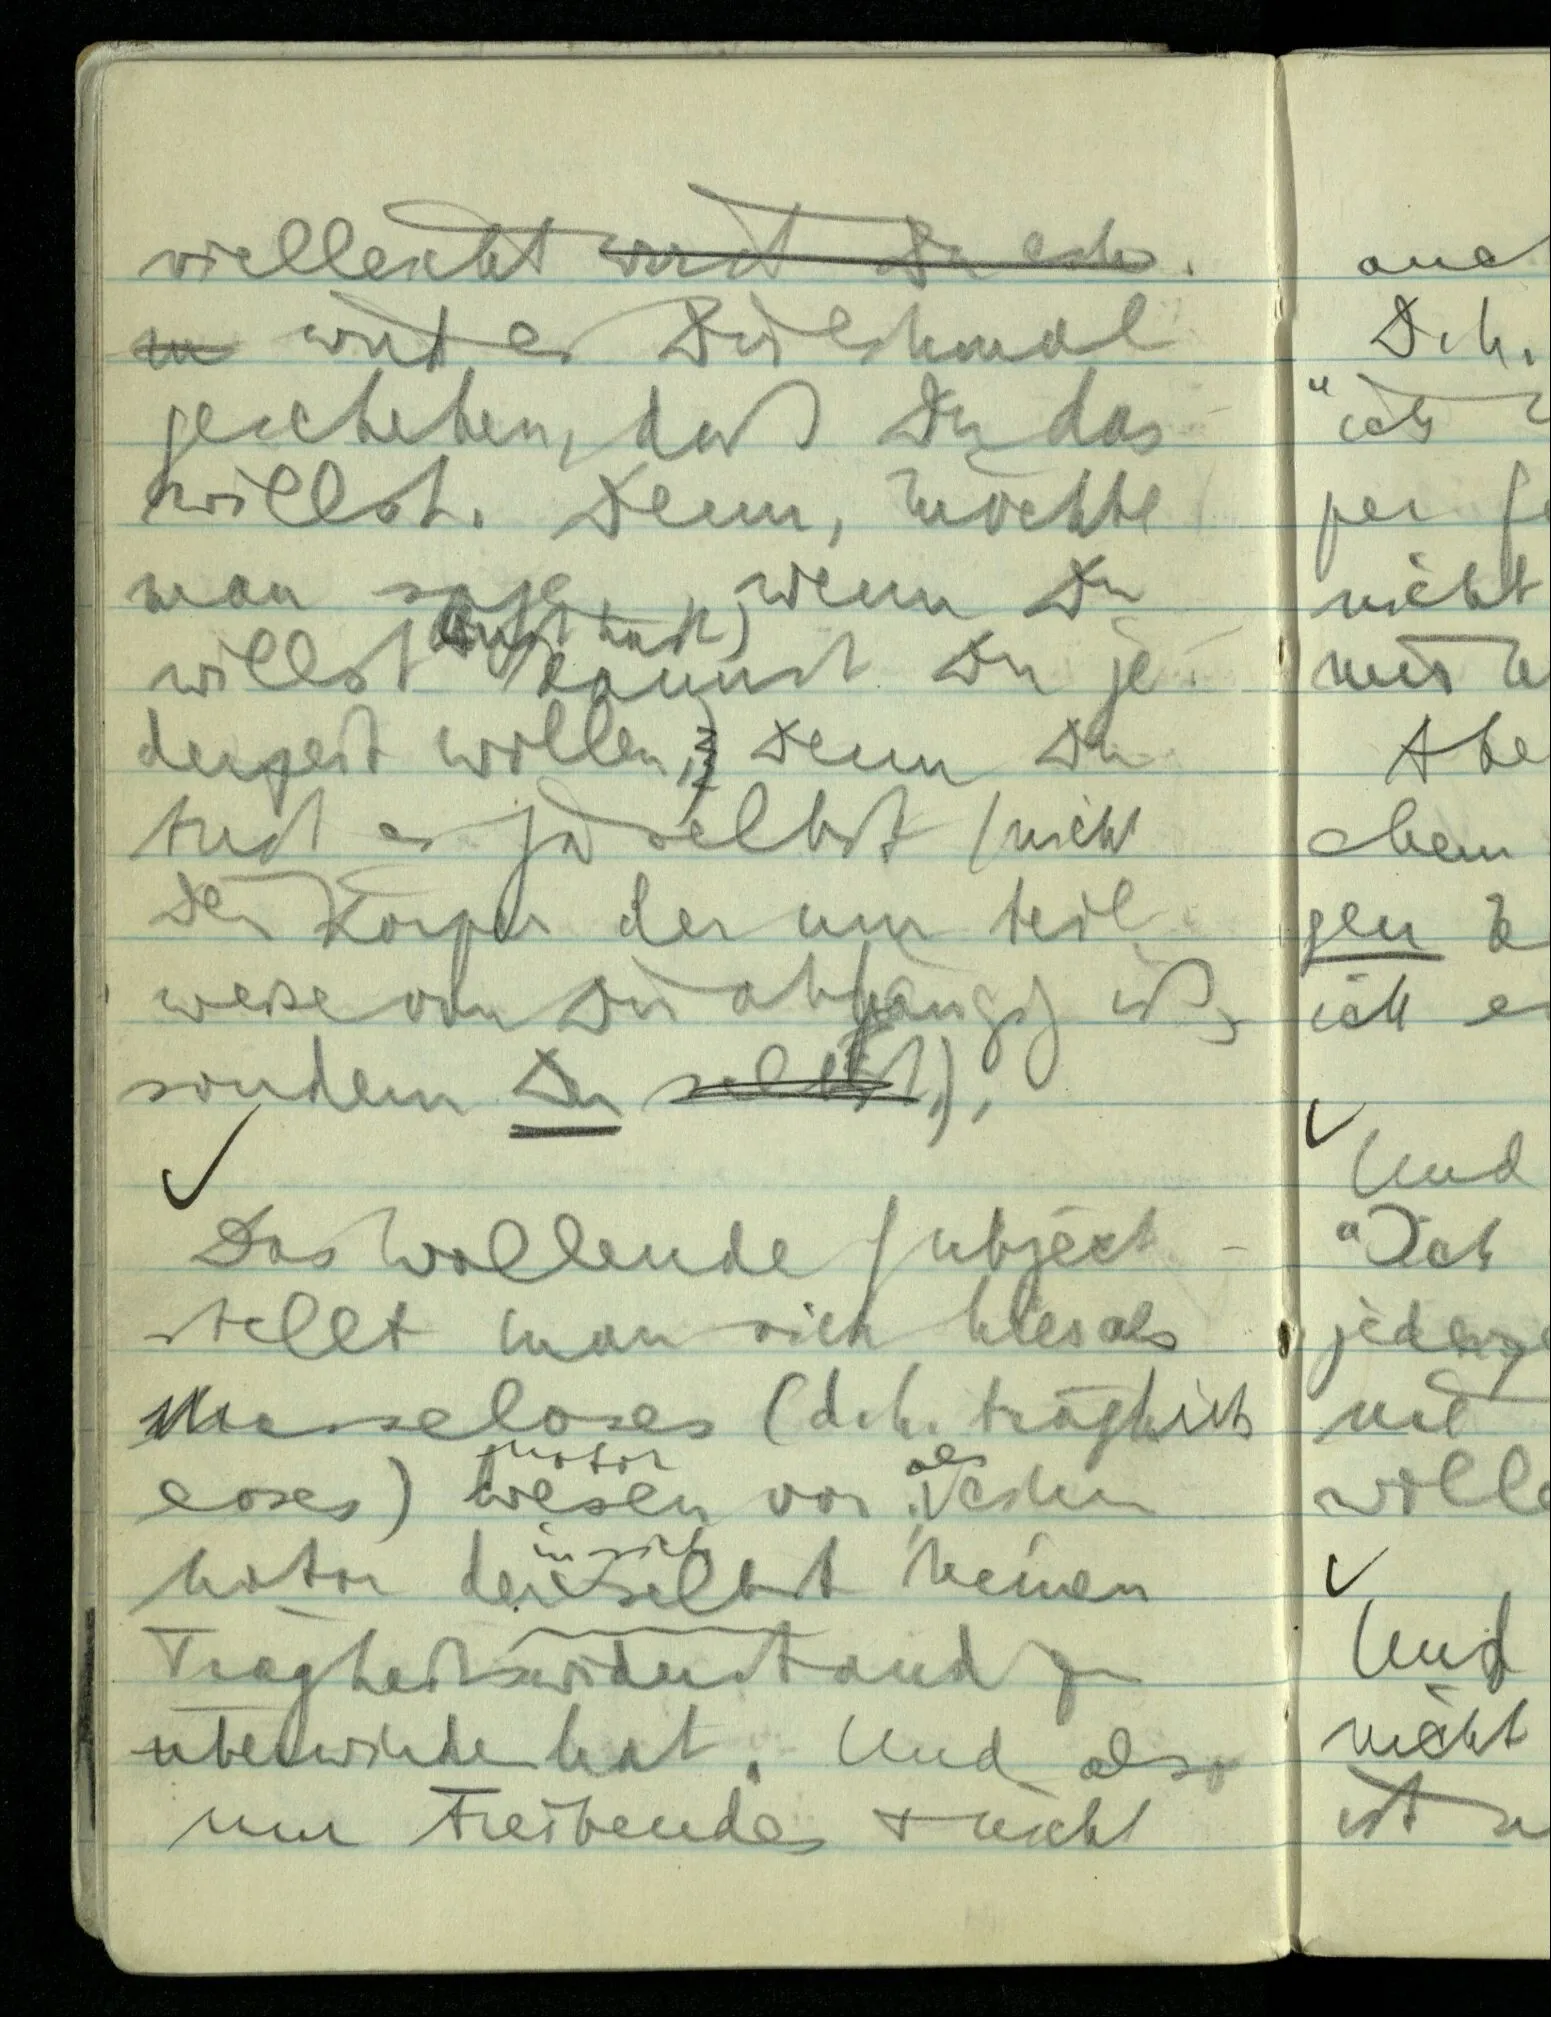 vielleicht wirst Du ech.
m wird es Dir einmal
geschehen, daß Du das
willst. Denn, möchte
man sage, wenn Du
Lust hast)
willst kannst Du je-
derzeit wollen, Denn Du
tust es ja selbst (nicht
Der Körper der nur teil-
weise von Dir abhängig ist,
sondern Du selbst),
✓
Das wollende Subject
stellt man sich hier als
Masseloses (d.h. trägheits
loses) wesen vor. als einen
motor
motor der selbst keinen
in sich
Trägheitswiderstand zu
überwinden hat. Und also
nur Treibendes + nicht
auch
D.h.
"ich
per
nicht
mir
Abe
gen
ich
✓
Und
"Ich
jederze
und
wolle
✓
Und
nicht
ist